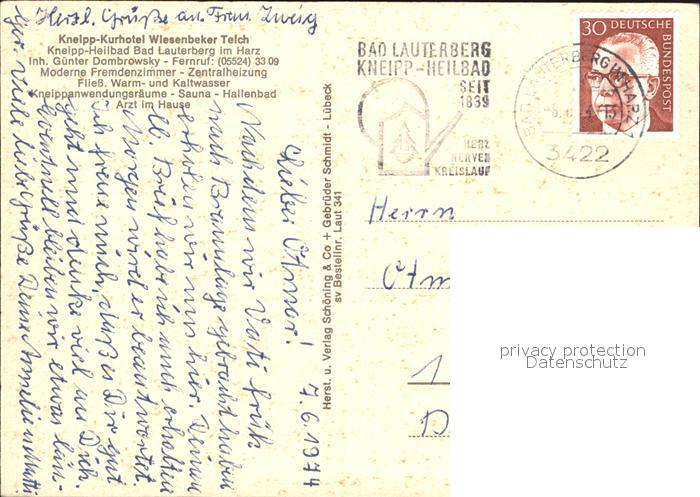 Herzl. Grüße an Frau Zweig
Kneipp-Kurhotel Wiesenbeker Teich
Kneipp-Heilbad Bad Lauterberg im Harz
Inh. Günter Dombrowsky - Fernruf: (05524) 33 09
Moderne Fremdenzimmer - Zentralheizung
Fließ. Warm- und Kaltwasser
Kneippanwendungsräume - Sauna - Hallenbad
Arzt im Hause
7.6.1974
Lieber Otmar!
Nachdem wir Vati früh
nach Braunlage gebracht haben
erholen wir uns hier. Deinen
lb. Brief habe ich auch erhalten
Morgen wird er beantwortet.
Ich freue mich, daß es Dir gut
geht und denke viel an Dich.
Eventuell bleiben wir etwas län-
ger. Viele liebe Grüße Deine Mutti
Herst. u. Verlag Schöning & Co + Gebrüder Schmidt - Lübeck
sv Bestellnr. Laut 341
BAD LAUTERBERG
KNEIPP-HEILBAD
SEIT
1839
HERZ
NERVEN
KREISLAUF
BAD LAUTERBERG IM HARZ
3422
30 DEUTSCHE
BUNDESPOST
Herrn
privacy protection
Datenschutz